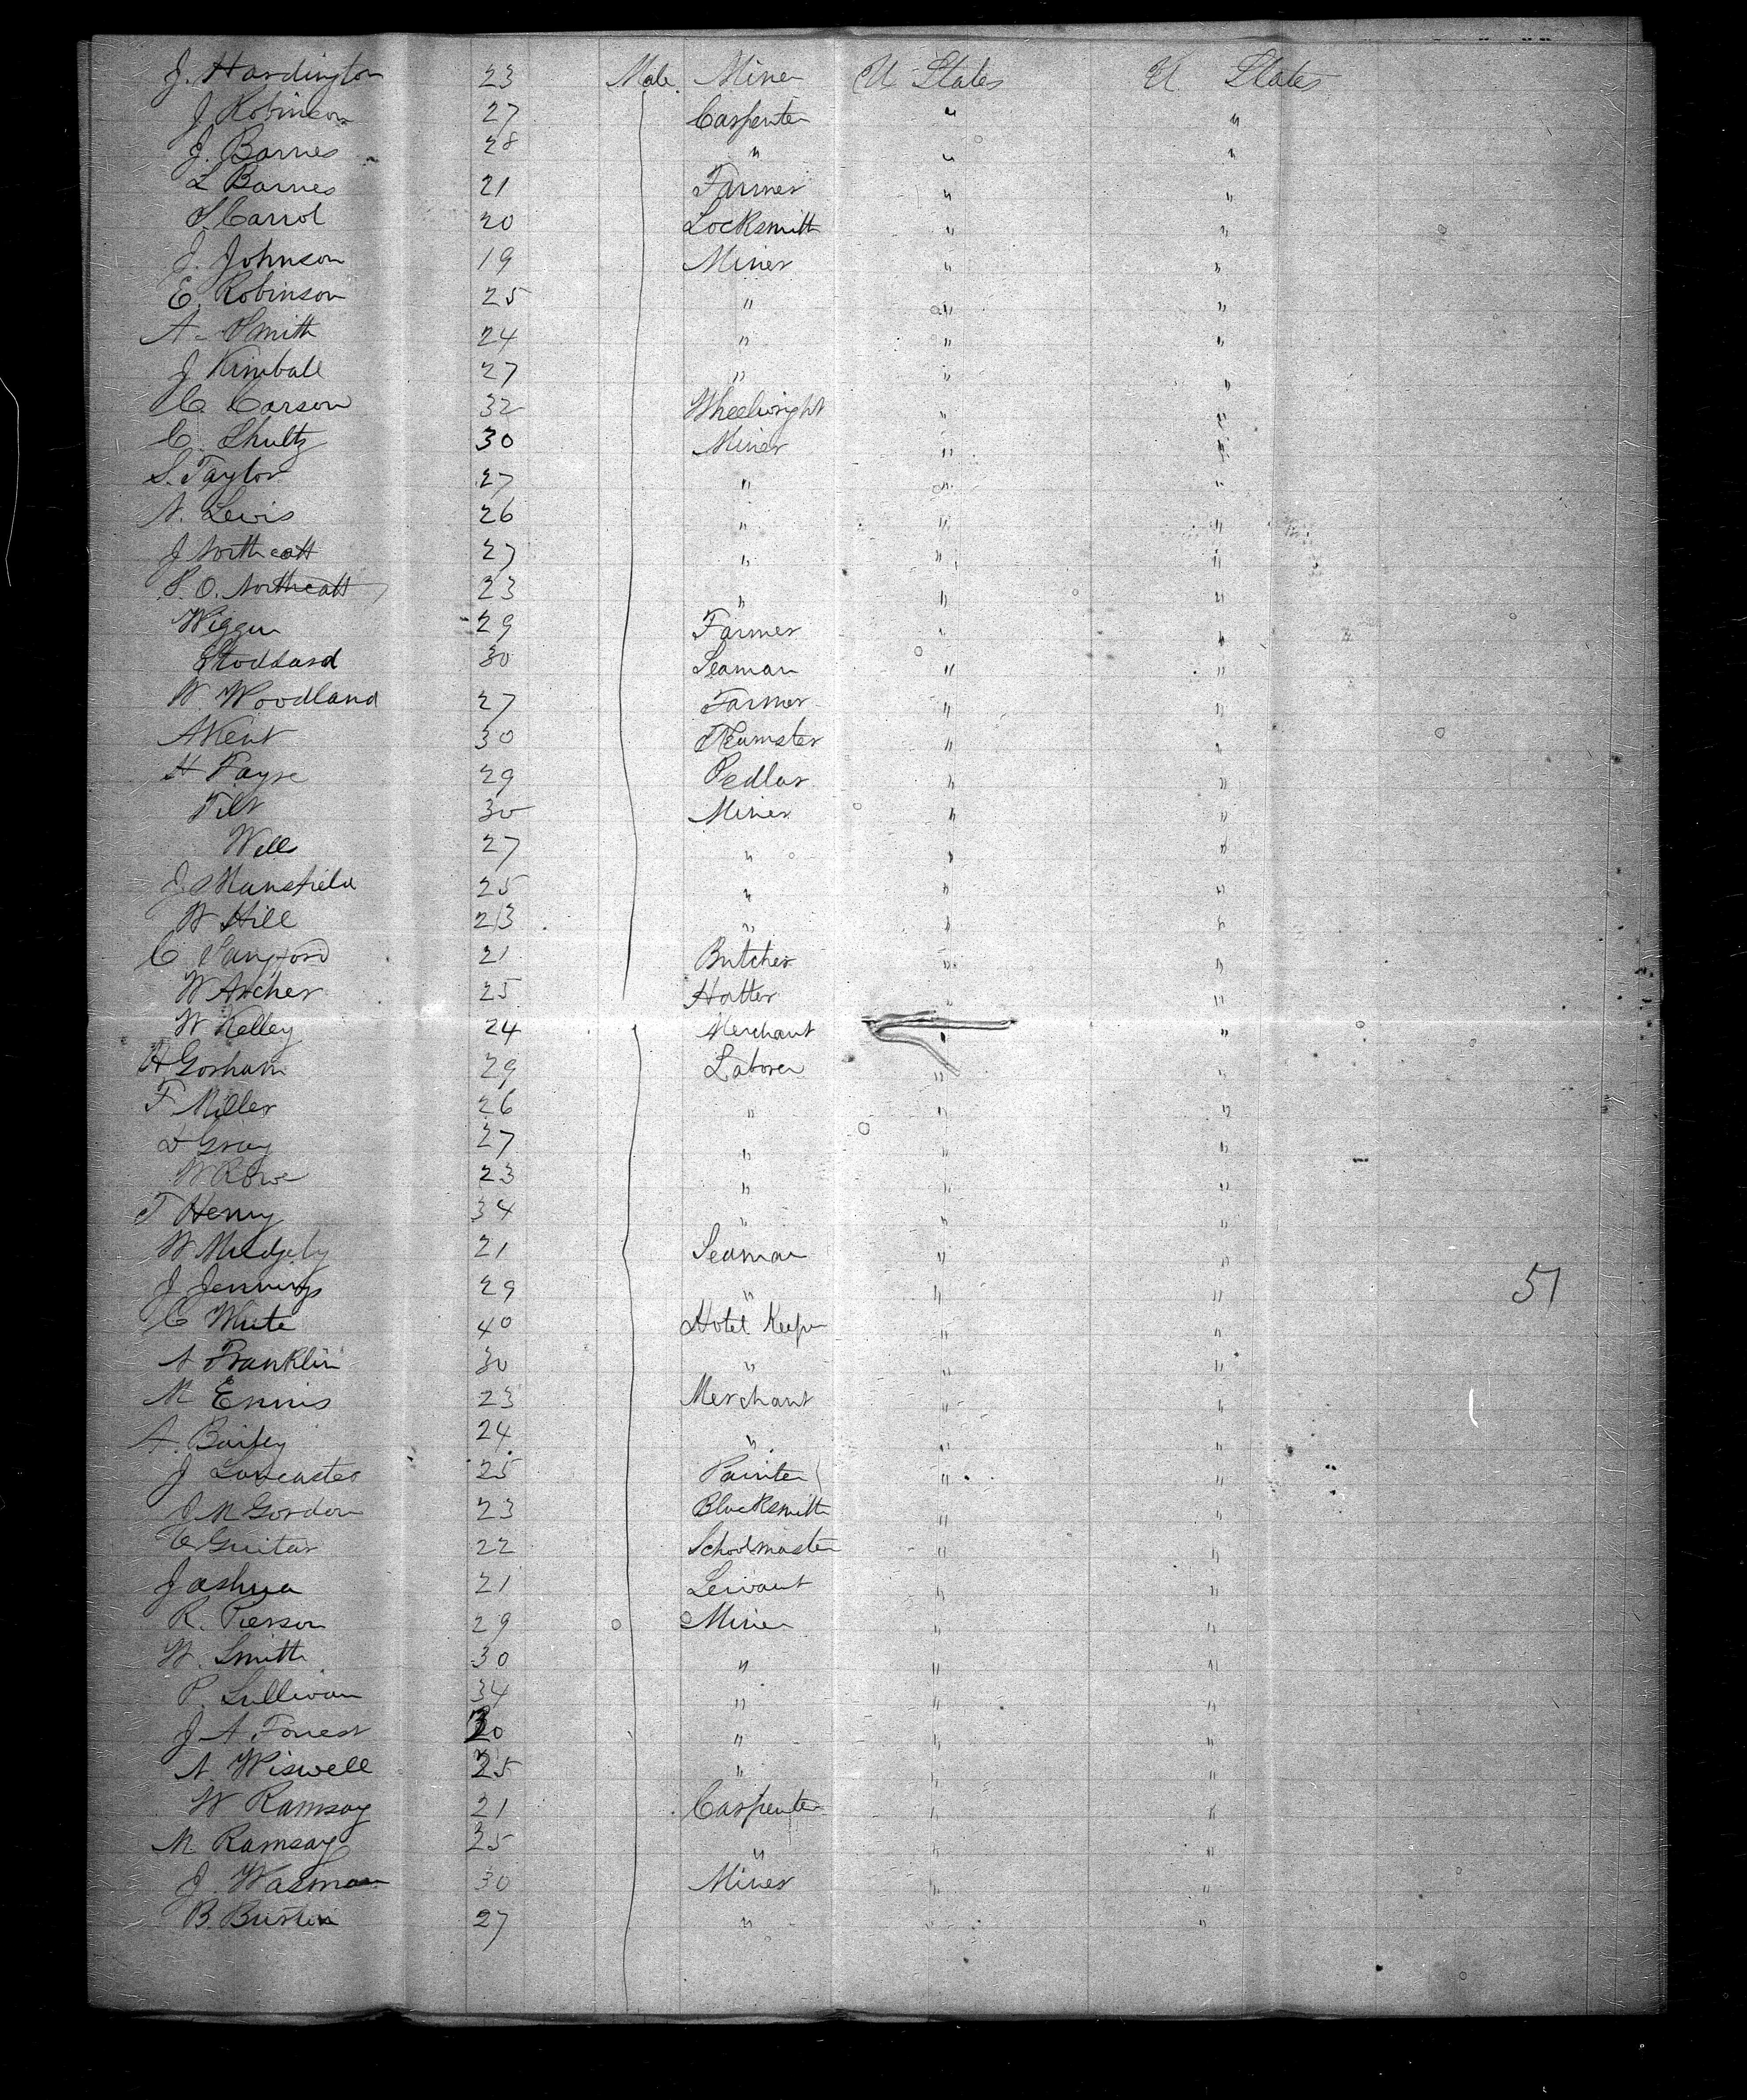 J. Hardington 23 Male Miner U States U States
J Robinson 27 Carpenter " "
J. Barnes 28 " " "
L Barnes 21 Farmer " "
S. Carrol 20 Locksmith " "
J. Johnson 19 Miner " "
E. Robinson 25 " " "
A. Smith 24 " " "
J Kimball 27 " " "
C. Carson 32 Wheelwright " "
C. Shultz 30 Miner " "
S. Taylor 27 " " "
A. Lewis 26 " " "
J Northcott 27 " " "
S. O. Northcott 23 " " "
Wiggin 29 Farmer " "
Stoddard 30 Seaman " "
W. Woodland 27 Farmer " "
A Kent 30 Teamster " "
H 29 Pedlar " "
Tilt 30 Miner " "
Wells 27 " " "
J. Mansfield 25 " " "
W Hill 23 " " "
C. 21 Butcher " "
W Archer 25 Hatter " "
W Kelley 24 Merchant " "
H Gorham 29 Laborer " "
F. Miller 26 " " "
D Gray 27 " " "
W. Rowe 23 " " "
T Henry 34 " " "
W Midgely 21 Seaman " "
J Jennings 29 " " "
51
C White 40 Hotel Keeper " "
A Franklin 30 " " "
M Ennis 23 Merchant " "
A. Bailey 24 " " "
J Lancaster 25 Painter " "
J M Gordon 23 Blacksmith " "
C Guitar 22 Schoolmaster " "
Joshua 21 Servant " "
R. Pierson 29 Miner " "
W. Smith 30 " " "
P. Sullivan 34 " " "
J A. Forrest 30 " " "
A. Wiswell 25 " " "
W Ramsay 21 Carpenter " "
M. Ramsay 25 " " "
J. Wasman 30 Miner " "
B. 27 " " "